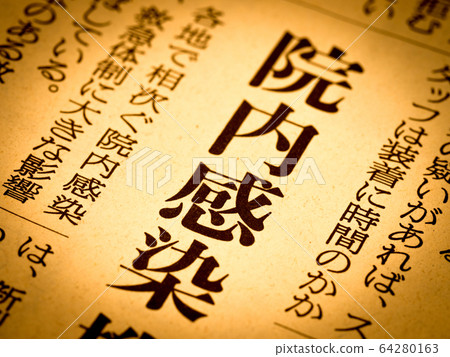 の疑いがあれば、ス
タッフは装着に時間のかか
院内感染
各地で相次ぐ院内感染
救急体制に大きな影響
している。
のある救
は、新
64280163